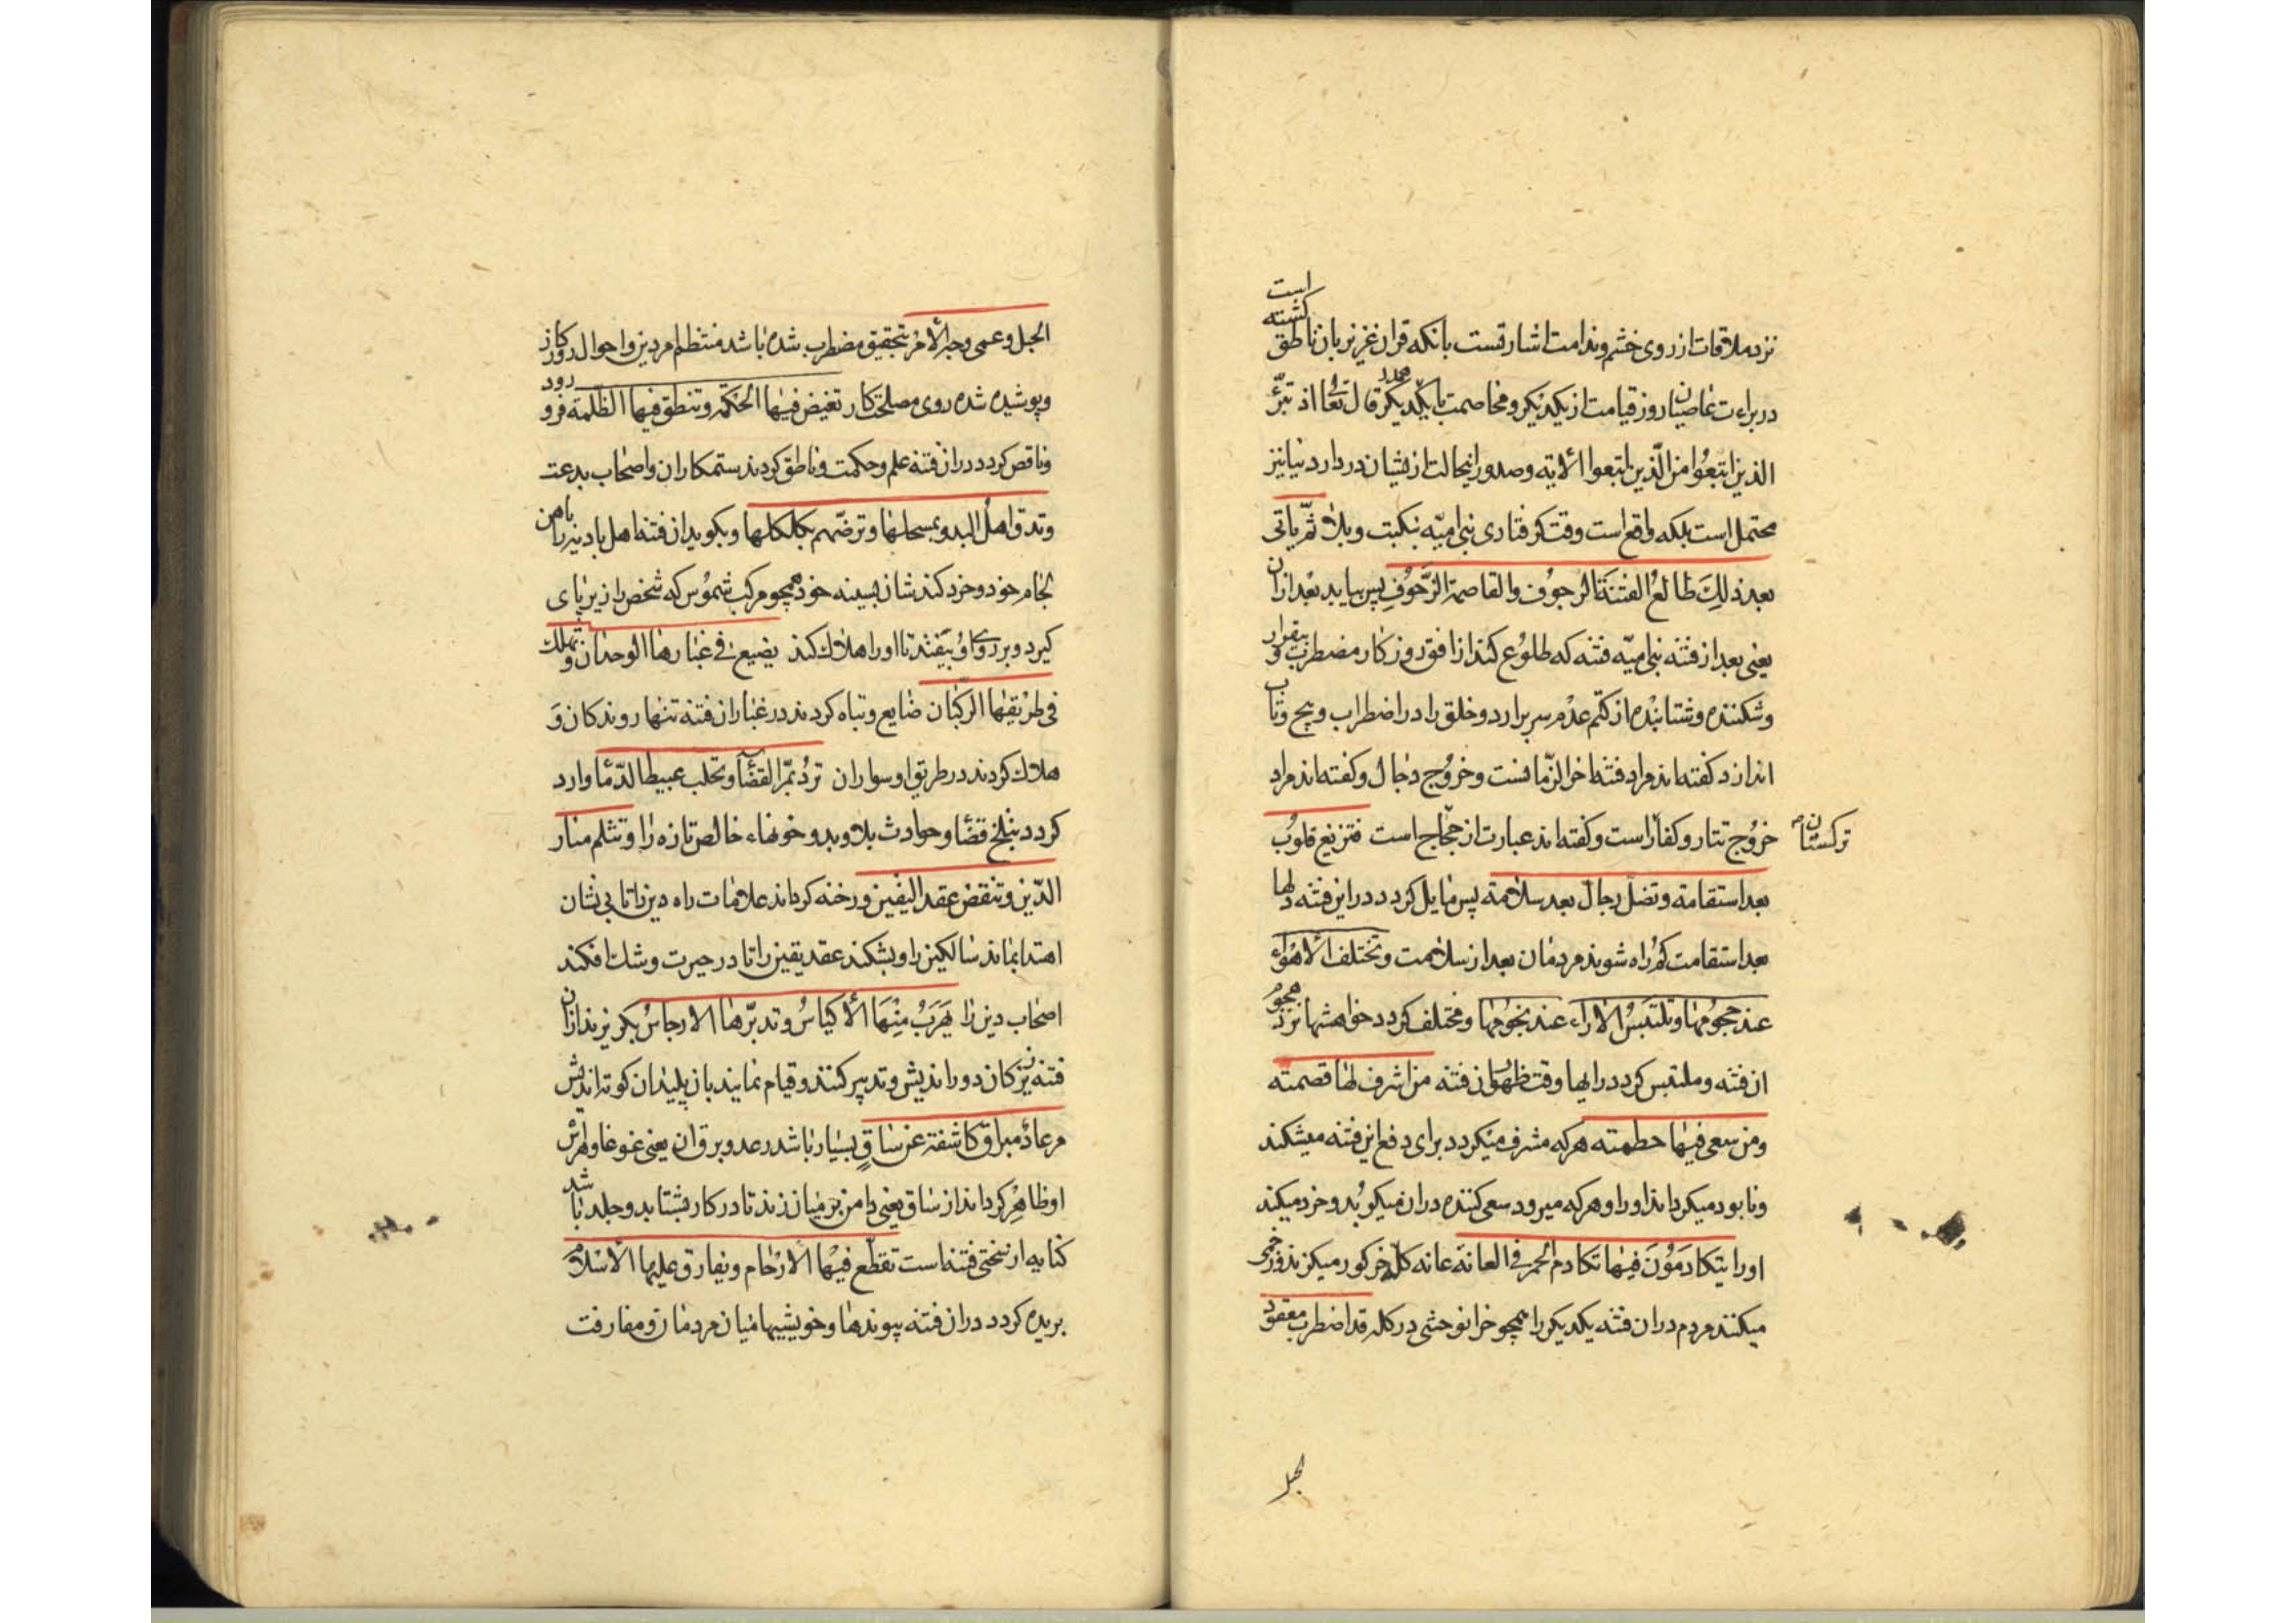 نزد ملاقات از روی خشم و ندامت اشارتست بانکه قران عزیز بزبان ناطق کشته است
در براءت عاصیان روز قیامت از یکدیکر و مخاصمت با یکدیکر قال تعا اذ تبرّء
الذین اتبعوا من الّذین اتبعوا الایه و صدور اینحالت ازیشان در دار دنیا نیز
محتمل است بلکه واقع است وقت کرفتاری بنی امیّه بنکبت و بلا ثمّ یاتی
بعد ذلِكَ طالع الفتنَة الرجوف والقاصمة الزّحوفِ پس بیاید بعد از ان
یعنی بعد از فتنه بنی امیّه فتنه که طلوع کند از افق روزکار مضطرب و بیقرار
و شکننده و شتابنده از کتم عدم سر برارد و خلق را در اضطراب و پیچ و تاب
اندازد کفته اند مراد فتنه اخر الزّمانست و خروج دجال و کفته اند مراد
خروج تتار و کفار است و کفته اند عبارت از حجّاج است فتزیغ قلوب
ترکستان
بعد استقامة و تضلّ رجال بعد سلامة پس مایل کردد دراین فتنه دلها
بعد استقامت کمراه شوند مردمان بعد از سلامت و تختلف الاهواء
عند هجومها و تلتبس الاراء عند نجومها و مختلف کردد خواهشها نزد هجوم
ان فتنه و ملتبس کردد رایها وقت ظهور ان فتنه من اشرف لها قصمته
و من سعی فیها حطمته هرکه مشرف میکردد برای دفع این فتنه میشکند
و نابود میکرداند او را و هرکه میرود سعی کننده دران میکوبد و خرد میکند
او را یتکادمُونَ فیها تکادم الحمر فی العانة عانه کلّه خر کور میکزند و زخمی
میکنند مردم دران فتنه یکدیکر را همچو خران وحشی در کله قد اضطرب معقود
الحبل
الحبل و عمی وجه الامر بتحقیق مضطرب شده باشد منتظم امر دین و احوال روزکار
و پوشیده شده روی مصلحت کار تغیض فیها الحکمة و تنطق فیها الظّلمة فرو رود
و ناقص کردد دران فتنه علم و حکمت و ناطق کردند ستمکاران و اصحاب بدعت
و تدق اهل البدو بمسحلها و ترضّهم بکلکلها و بکوبد ان فتنه اهل بادیه را باهن
لجام خود و خرد کندشان بسینه خود همچو مرکب شموس که شخص را زیر پای
کیرد و بر روی او بیفتد تا او را هلاك کند یضیع فی غبارها الوحدان و تهلك
فی طریقها الرکبان ضایع و تباه کردند در غبار ان فتنه تنها روندکان وَ
هلاك کردند در طریق او سواران ترد بمرّ القضا و تحلب عبیط الدّما وارد
کردد بتلخ قضا و حوادث بلا و بدوشد خونهاء خالص تازه را و تثلم منار
الدّین و تنقض عقد الیقین و رخنه کرداند علامات راه دین را تا بی نشان
اهتدا بماند سالکین را و بشکند عقد یقین را تا در حیرت و شك افکند
اصحاب دین را یهربُ مِنْهَا الاکیاسُ و تدبّرها الارجاسُ بکریزند ازان
فتنه زیرکان دوراندیش و تدبیر کنند و قیام نمایند بان پلیدان کوته اندیش
مرعاد مبراق کاشفة عن ساقٍ بسیار باشد رعد و برق ان یعنی غوغا و لهرش
او ظاهر کرداند از ساق یعنی دامن بر میان زند تا در کار بشتابد و جلد باشد
کنایه از سختی فتنه است تقطّع فیها الارحام و یفارق علیها الاسلام
بریده کردد دران فتنه پیوندها و خویشیها میان مردمان و مفارقت